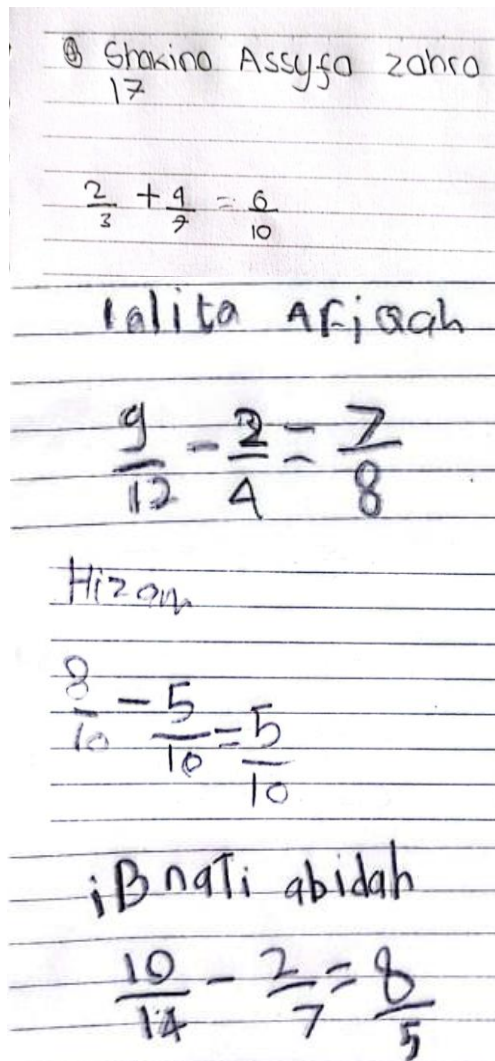 Shakina Assyfa zahra
17
2/3 + 4/7 = 6/10
lalita AFiqah
9/12 - 2/4 = 7/8
Hizam
8/10 - 5/10 = 5/10
iBnaTi abidah
10/14 - 2/7 = 8/5